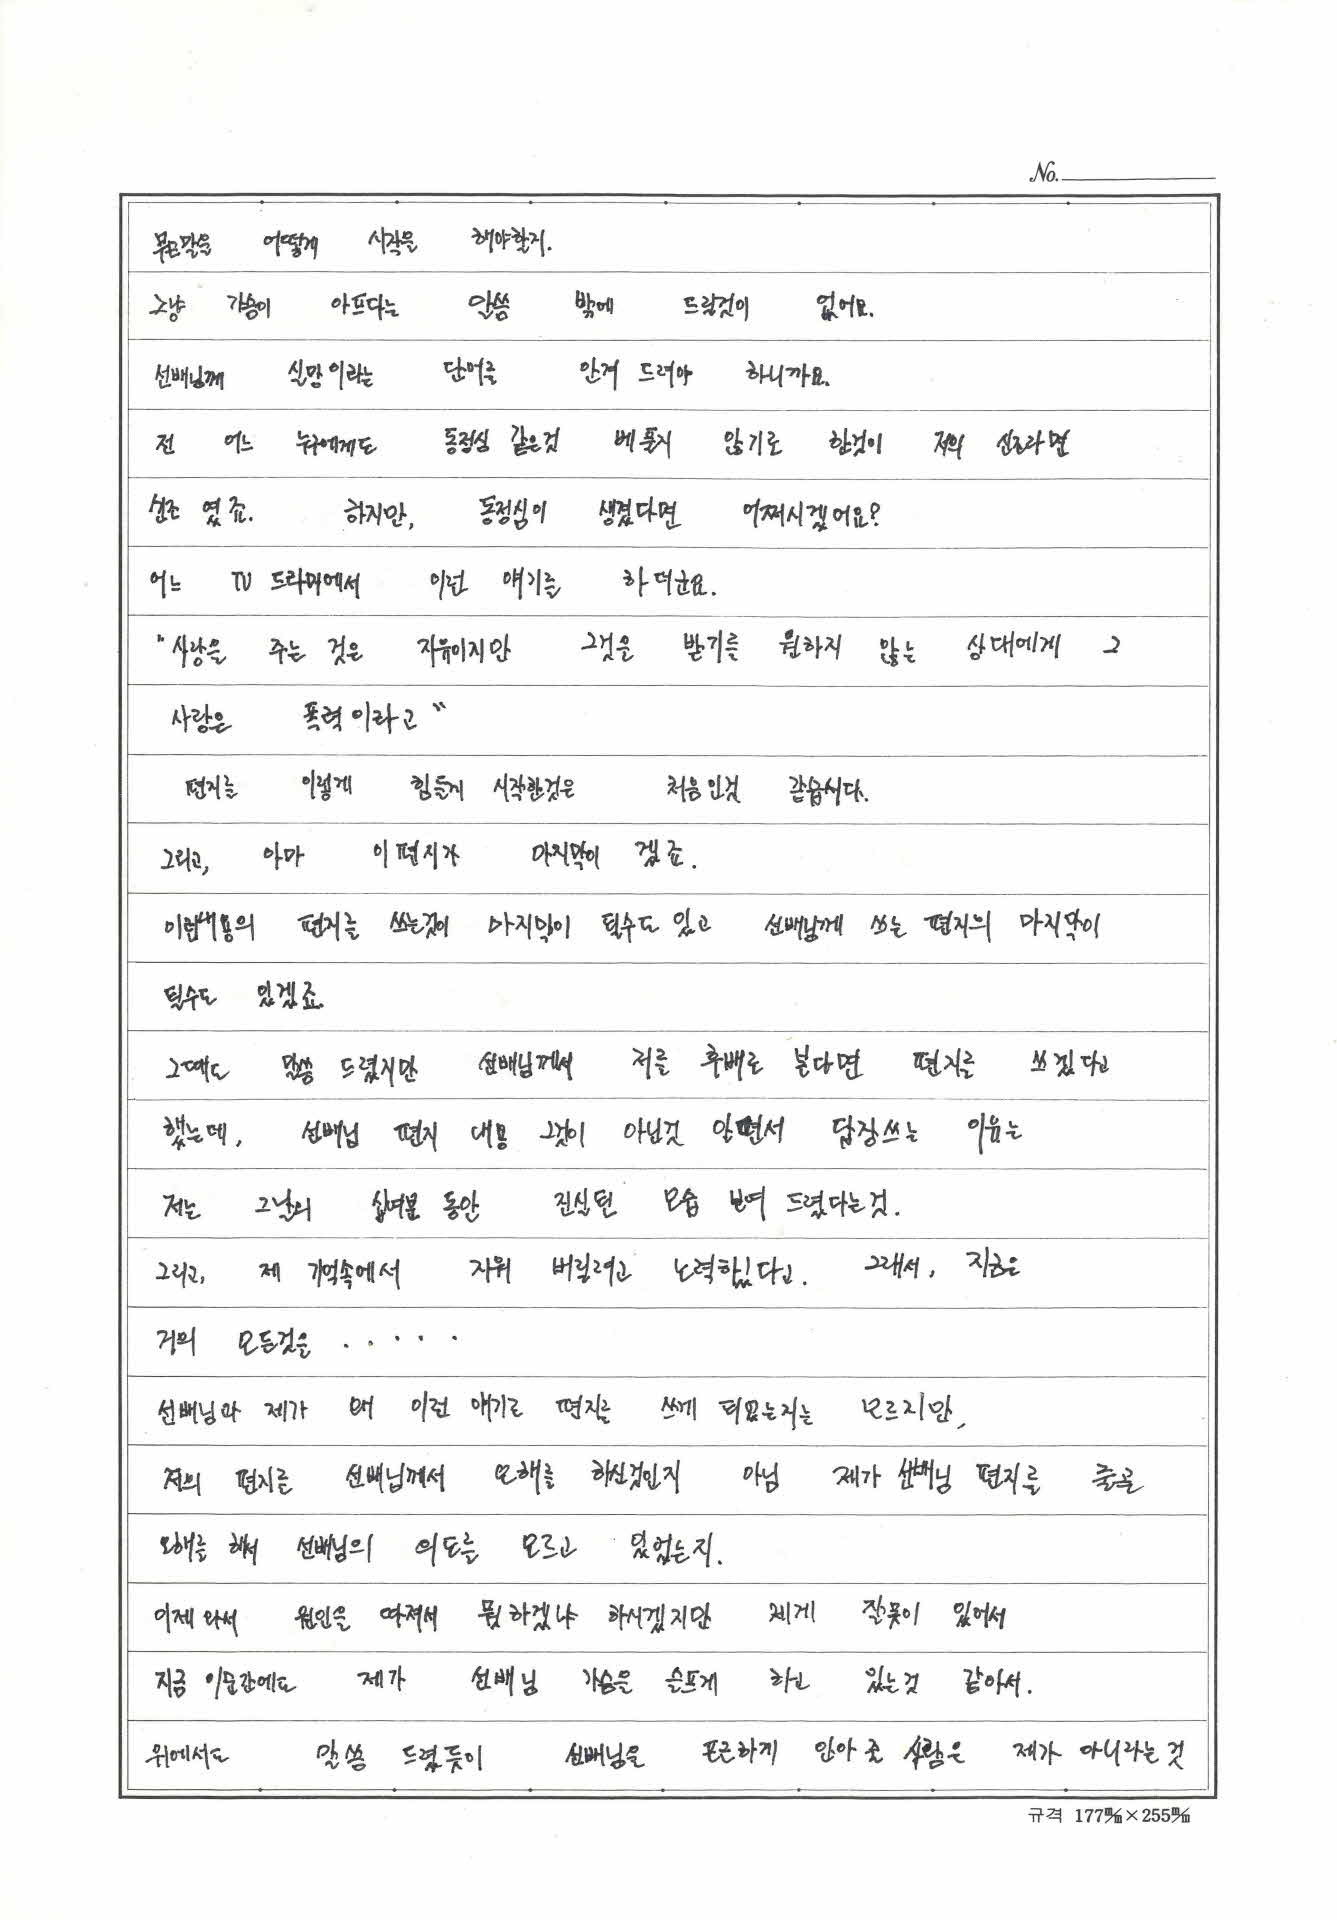 No.
무슨말을 어떻게 시작을 해야할지.
그냥 가슴이 아프다는 말씀 밖에 드릴것이 없어요.
선배님께 실망이라는 단어를 안겨 드려야 하니까요.
전 어느 누구에게도 동정심 같은것 베풀지 않기로 한것이 저의 신조라면
신조 였죠. 하지만, 동정심이 생겼다면 어쩌시겠어요?
어느 TV 드라마에서 이런 얘기를 하더군요.
"사랑을 주는 것은 자유이지만 그것을 받기를 원하지 않는 상대에게 그
사랑은 폭력이라고"
편지를 이렇게 힘들게 시작한것은 처음인것 같습니다.
그리고, 아마 이 편지가 마지막이 겠죠.
이런내용의 편지를 쓰는것이 마지막이 될수도 있고 선배님께 쓰는 편지의 마지막이
될수도 있겠죠.
그때도 말씀 드렸지만 선배님께서 저를 후배로 본다면 편지를 쓰겠다고
했는데, 선배님 편지 내용 그것이 아닌것 알면서 답장쓰는 이유는
저는 그날의 십여분 동안 진실된 모습 보여 드렸다는것.
그리고, 제 기억속에서 지워 버릴려고 노력하있다고. 그래서, 지금은
거의 모든것을 . . . . .
선배님과 제가 왜 이런 얘기로 편지를 쓰게 되었는지는 모르지만,
저의 편지를 선배님께서 오해를 하신것인지 아님 제가 선배님 편지를 줄곧
오해를 해서 선배님의 의도를 모르고 있었는지.
이제 와서 원인을 따져서 뭘하겠냐 하시겠지만 제게 잘못이 있어서
지금 이순간에도 제가 선배님 가슴을 슬프게 하고 있는것 같아서.
위에서도 말씀 드렸듯이 선배님을 포근하게 안아 줄 사람은 제가 아니라는것
규격 177㎜×255㎜